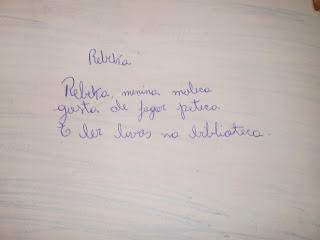 Rebeka
Rebeka, menina moleca
gosta de jogar peteca.
E ler livros na biblioteca.